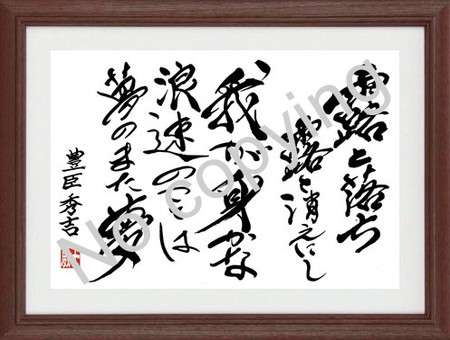 露と落ち
露と消えにし
我が身かな
浪速のことは
夢のまた夢
豊臣秀吉
No copying